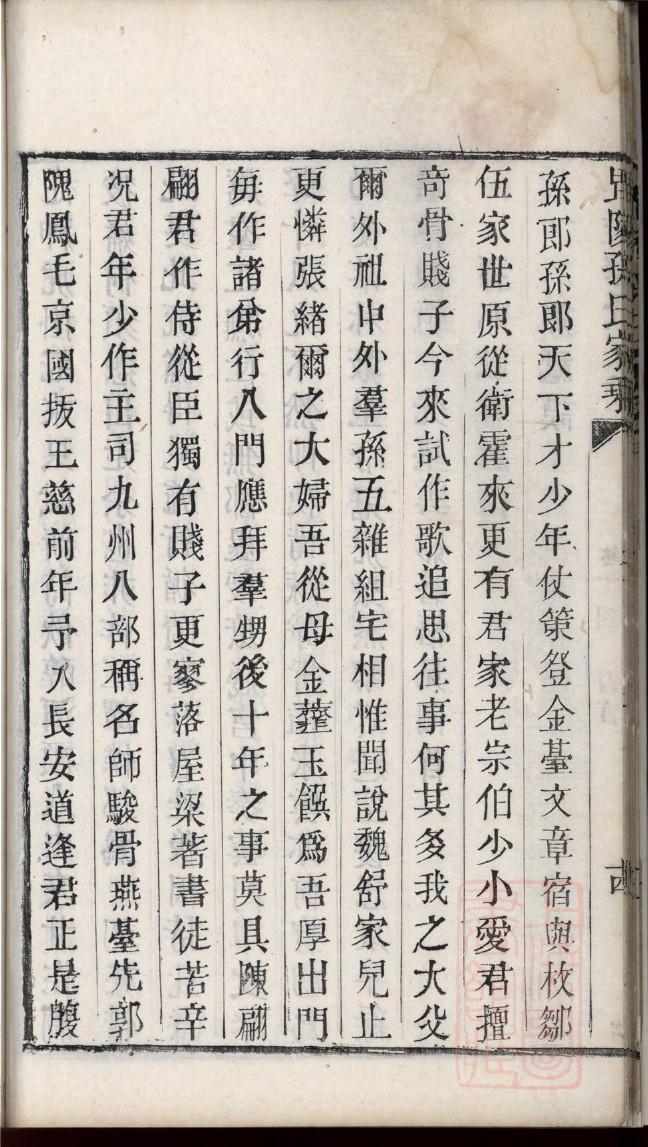 孫氏家乘
孫郎孫郎天下才少年仗策登金臺文章宿與枚鄒
伍家世原從衛霍來更有君家老宗伯少小愛君擅
奇骨賤子今來試作歌追思往事何其多我之大父
爾外祖中外羣孫五雜組宅相惟聞說魏舒家兒止
更憐張緒爾之大婦吾從母金虀玉饌爲吾厚出門
每作諸弟行入門應拜羣甥後十年之事莫具陳翩
翩君作侍從臣獨有賤子更寥落屋梁著書徒苦辛
况君年少作主司九州八部稱名師駿骨燕臺先郭
隗鳳毛京國拔王慈前年予入長安道逢君正是腹